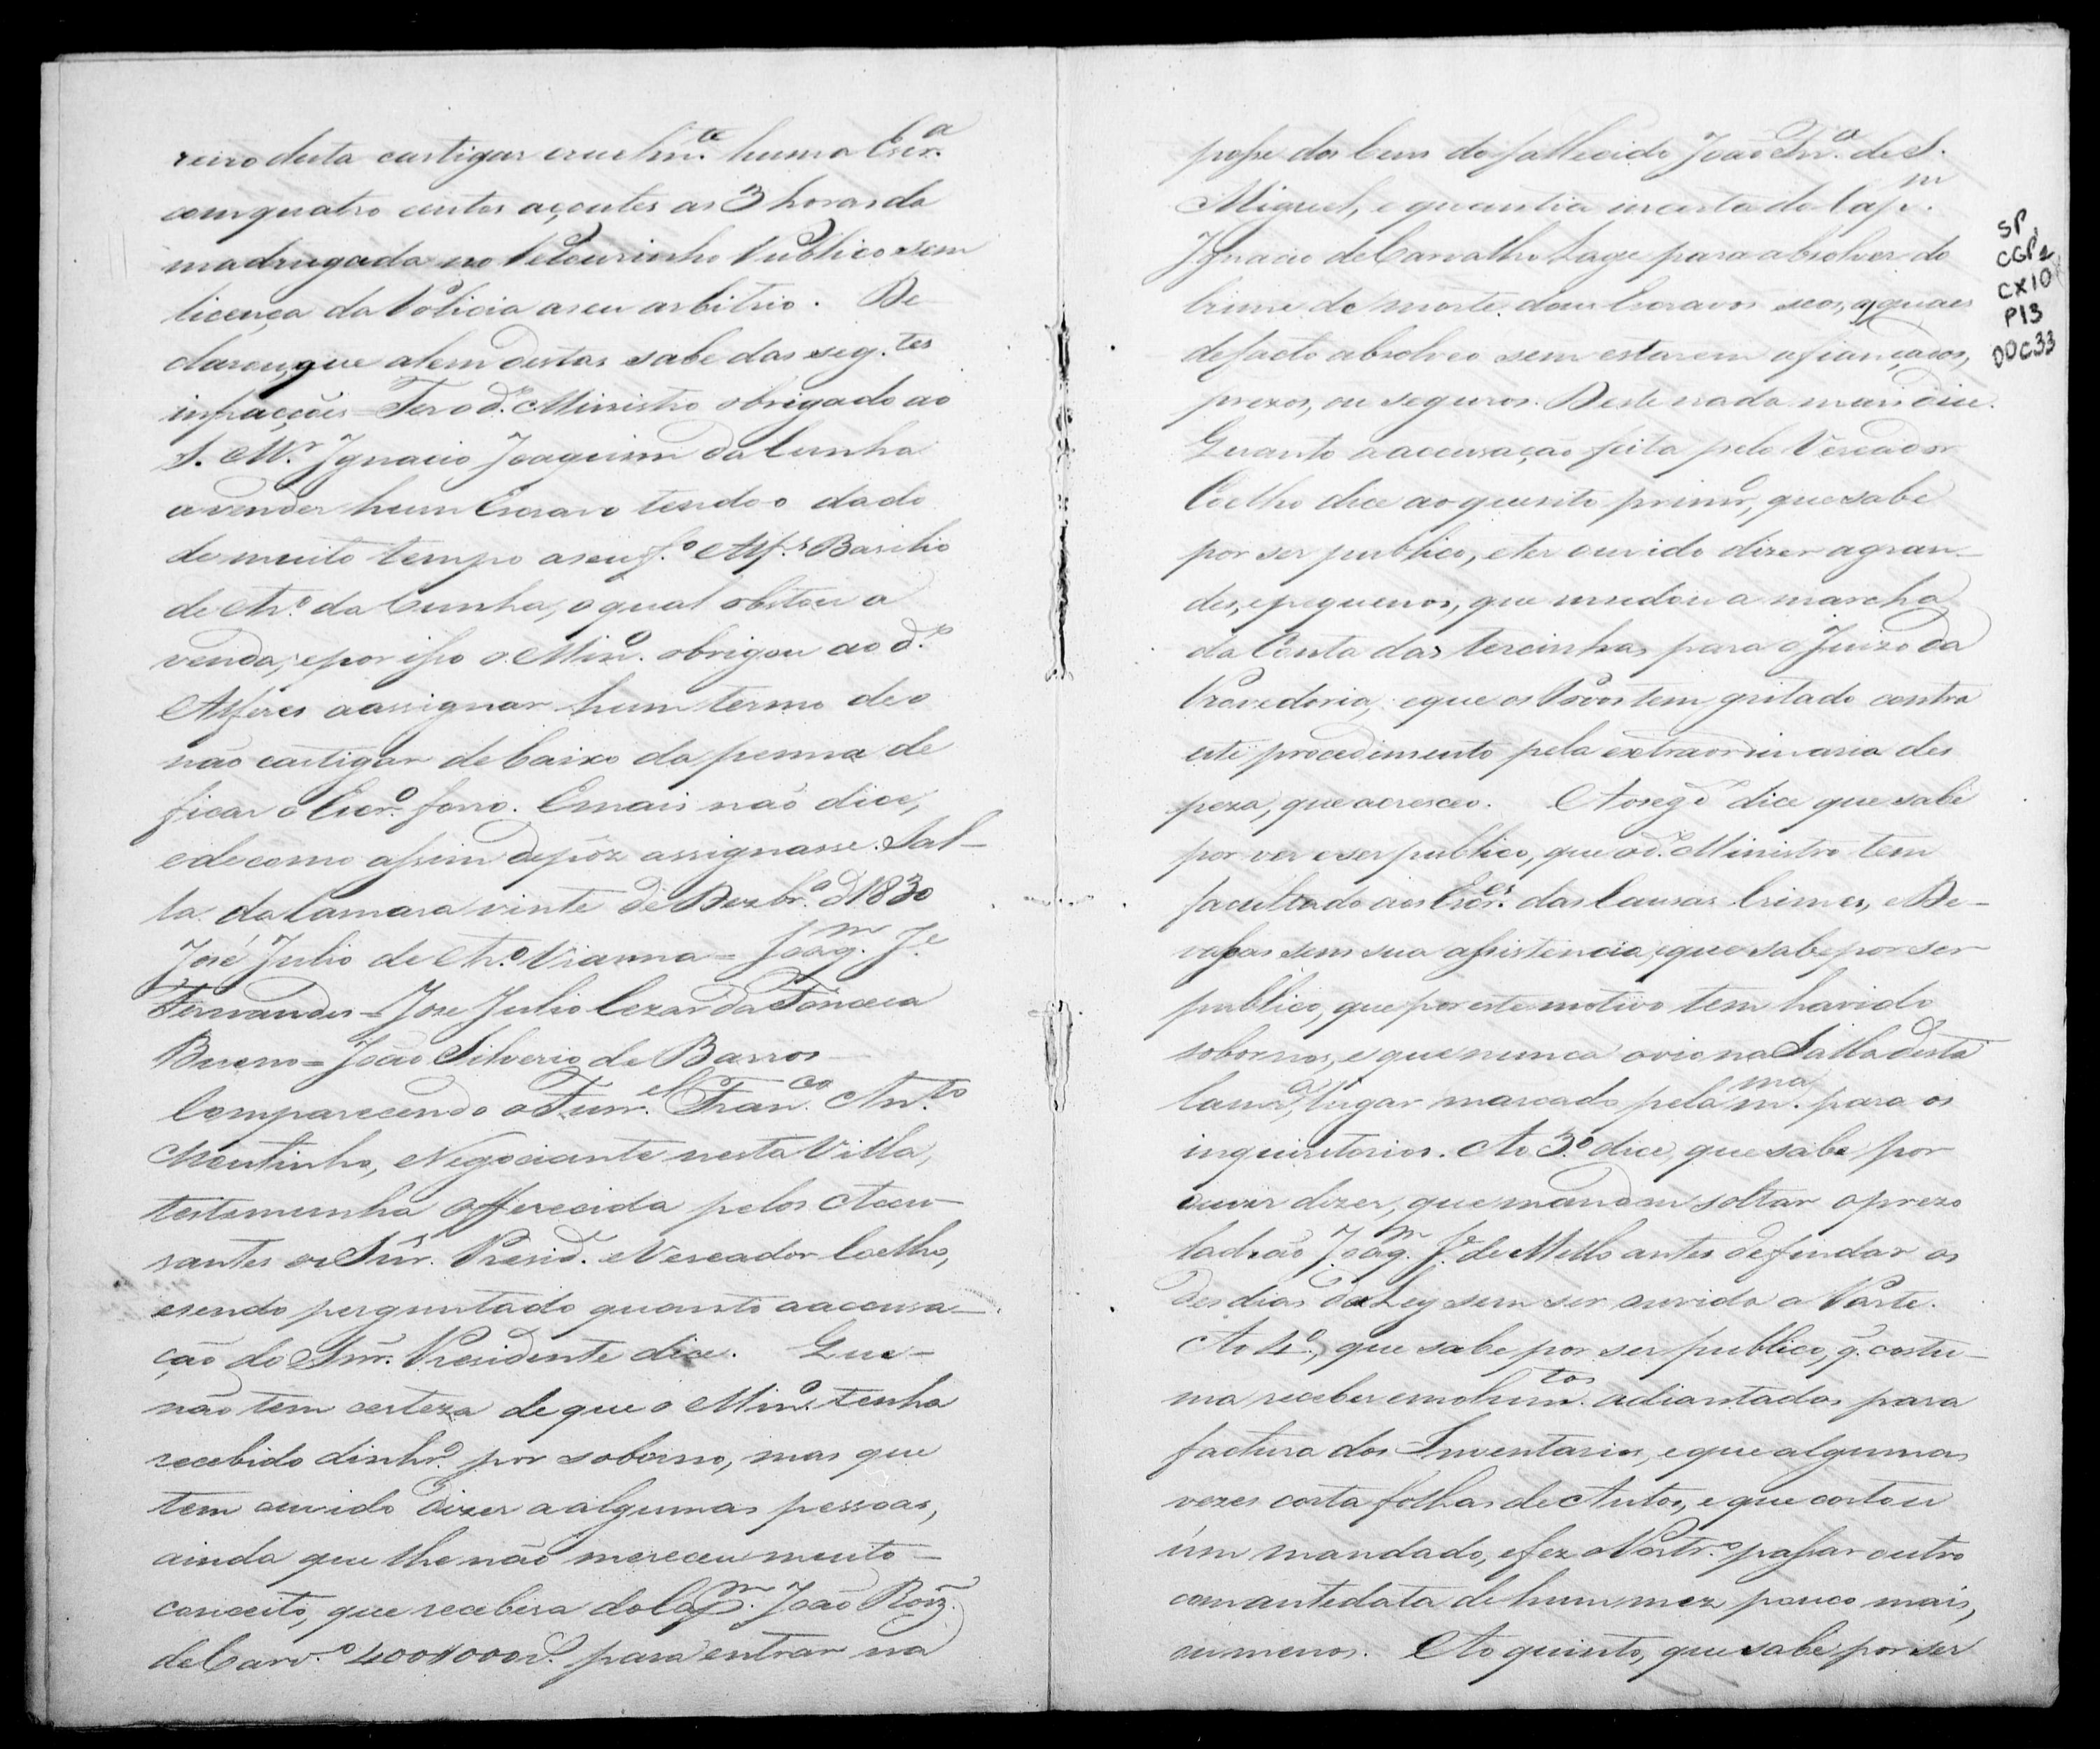 reiro desta castigar cruelm.te huma Escr.a
com quatro centos açoutes as 3 horas da
madrugada no Pelourinho Publico sem
licença da Policia a seu arbitrio. De-
clarou, que alem destas sabe das seg.tes
infracções = Ter o d.o Ministro obrigado ao
S. M.r Ignacio Joaquim da Cunha
a vender hum Escravo tendo-o dado
de muito tempo a seu f.o Alf.s Basilio
de Ar.o da Cunha, o qual obstou a
venda, e por isso o Min.o obrigou ao d.o
Alferes a assignar hum termo de o
não castigar debaixo da penna de
ficar o Escr.o forro. E mais não dice,
e de como assim depôz assignasse. Sal-
la da Camara vinte de Dezbr.o d'1830
José Julio de Ar.o Vianna = Joaq.m J.e
Fernandes = Joze Julio Cezar da Fonceca
Bueno = João Silverio de Barros
Comparecendo o Fran.co Ant.to
Moutinho, Negociante nesta Villa,
testemunha offerecida pelos Accu-
santes os Snr. Presid.e e Vereador Coelho,
e sendo perguntado quanto a accusa-
ção do Snr. Presidente dice. Que
não tem certeza de que o Min.o tenha
recebido dinhr.o por soborno, mas que
tem ouvido dizer a algumas pessoas,
ainda que lhe não mereceu muito
conceito, que recebera do Cap.m João Roiz.
de Carv.o 400$000 r. para entrar na
posse dos bens do fallecido João Fr.a de S.
Miguel, e quantia incerta do Cap.m
Ignacio de Carvalho Lage para absolver do
crime de morte dous Escravos seos, os quaes
de facto absolveo sem estarem afiançados,
prezos, ou seguros. Deste nada mais dice.
Quanto a accusação feita pelo Vereador
Coelho dice ao quesito primr.o, que sabe
por ser publico, e ter ouvido dizer a gran-
des, e pequenos, que mudou a marcha
da Conta das tercinhas para o Juizo da
Provedoria, e que os Povos tem gritado contra
este procedimento pela extraordinaria des
peza, que acresceo. Ao seg.do dice que sabe
por ver e ser publico, que o d.o Ministro tem
facultado aos Escr.es das Causas Crimes, e De-
vassas sem sua assistencia, e que sabe por ser
publico, que por este motivo tem havido
sobornos, e que nunca o vio na Salla desta
Camr.a, lugar marcado pela m.ma para os
inquiritorios. Ao 3.o dice, que sabe por
ouvir dizer, que mandou soltar o prezo
ladrão Joaq.m J.e de Mello antes de findar os
Des dias da Ley sem ser ouvida a Parte.
Ao 4.o, que sabe por ser publico, q. costu-
ma receber emolum.tos adiantados para
factura dos Inventarios, e que algumas
vezes corta folhas de Autos, e que cortou
úm mandado, e fez o Portr.o passar outro
com antedata de hum mez pouco mais,
ou menos. Ao quinto, que sabe por ser
SP,
CGP2
CX10
P13
DOC33